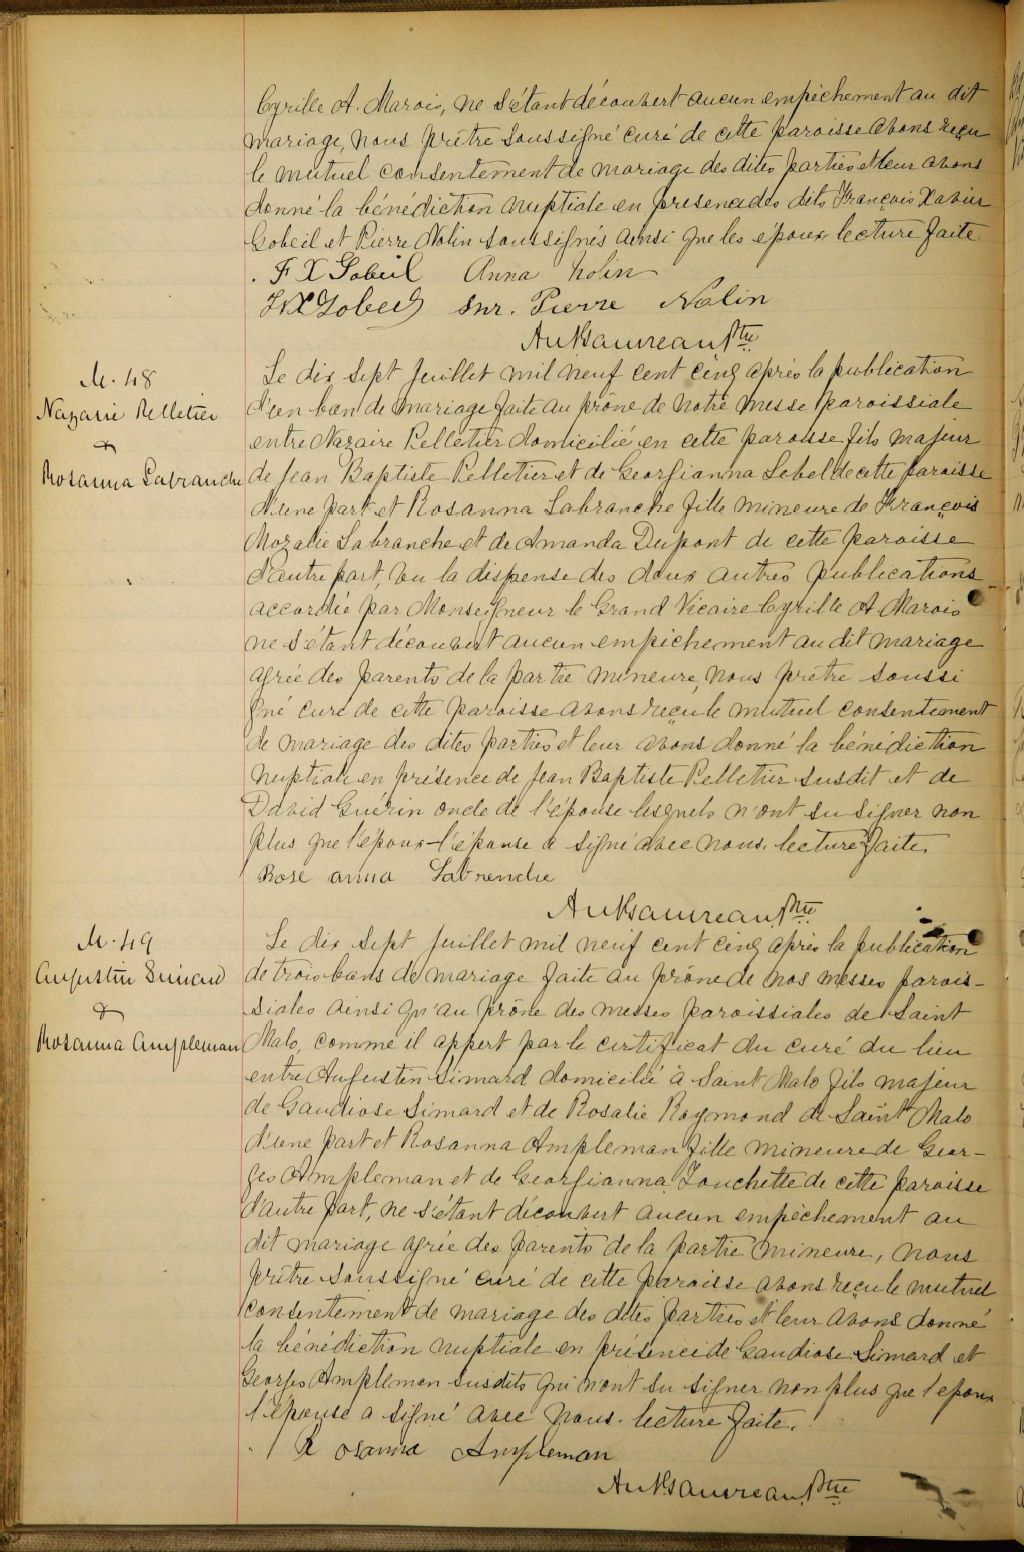 Cyrille A. Marois, ne s'étant découvert aucun empêchement au dit
mariage, nous prêtre soussigné curé de cette paroisse avons reçu
le mutuel consentement de mariage des dites parties et leur avons
donné la bénédiction nuptiale en presence des dits François Xavier
Gobeil et Pierre Nolin soussignés ainsi que les époux, lecture faite
F X Gobeil Anna Nolin
F. X Gobeil Snr. Pierre Nolin
Ptre
M. 48
Nazaire Pelletier
&
Rosanna Labranche
Le dix sept Juillet mil neuf cent cinq après la publication
d'un ban de mariage faite au prône de notre messe paroissiale
entre Nazaire Pelletier domicilié en cette paroisse fils majeur
de Jean Baptiste Pelletier et de Georgianna Lebel de cette paroisse
d'une part et Rosanna Labranche fille mineure de François
Mozalie Labranche et de Amanda Dupont de cette paroisse
d'autre part, vu la dispense des deux autres publications
accordée par Monseigneur le Grand Vicaire Cyrille A Marois
ne s'étant découvert aucun empêchement au dit mariage
agrée des parents de la partie mineure, nous prêtre soussi
gné curé de cette paroisse avons reçu le mutuel consentement
de mariage des dites parties et leur avons donné la bénédiction
nuptiale en présence de Jean Baptiste Pelletier susdit et de
David Guérin oncle de l'épouse lesquels n'ont su signer non
plus que l'époux l'épouse a signé avec nous. lecture faite.
Rose anna Labrenche
Ptre
M. 49
Augustin Simard
&
Rosanna Ampleman
Le dix sept Juillet mil neuf cent cinq après la publication
de trois bans de mariage faite au prône de nos messes parois-
siales ainsi qu'au prône des messes paroissiales de Saint
Malo, comme il appert par le certificat du curé du lieu
entre Augustin Simard domicilié à Saint Malo fils majeur
de Gaudiose Simard et de Rosalie Raymond de Saint Malo
d'une part et Rosanna Ampleman fille mineure de Geor-
ges Ampleman et de Georgianna Touchette de cette paroisse
d'autre part, ne s'étant découvert aucun empêchement au
dit mariage agrée des parents de la partie mineure, nous
prêtre soussigné curé de cette paroisse avons reçu le mutuel
consentement de mariage des dites parties et leur avons donné
la bénédiction nuptiale en présence de Gaudiose Simard et
Georges Ampleman susdits qui n'ont su signer non plus que l'epoux
l'épouse a signé avec nous. lecture faite.
Rosanna Ampleman
Ptre